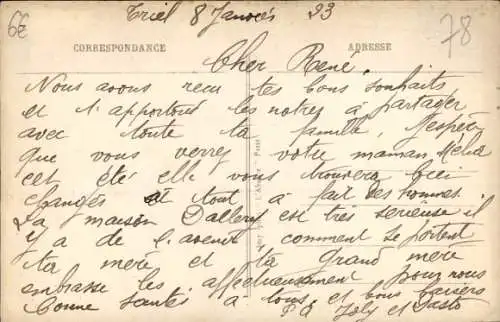 6€
Triel 8 Janvier 33
78
CORRESPONDANCE
ADRESSE
Cher René,
Nous avons recu tes bons souhaits
et t'apportons les notres à partager
avec toute ta famille, J'espère
que vous verrez votre maman Mélia
cet été elle vous trouvera bien
changés et tout à fait des hommes.
La maison Dallery est très serieuse il
y a de l'avenir comment se portent
ta mere et ta grand mère
embrasse les affectueusement pour nous
bonne santé à tous et bons baisers
et